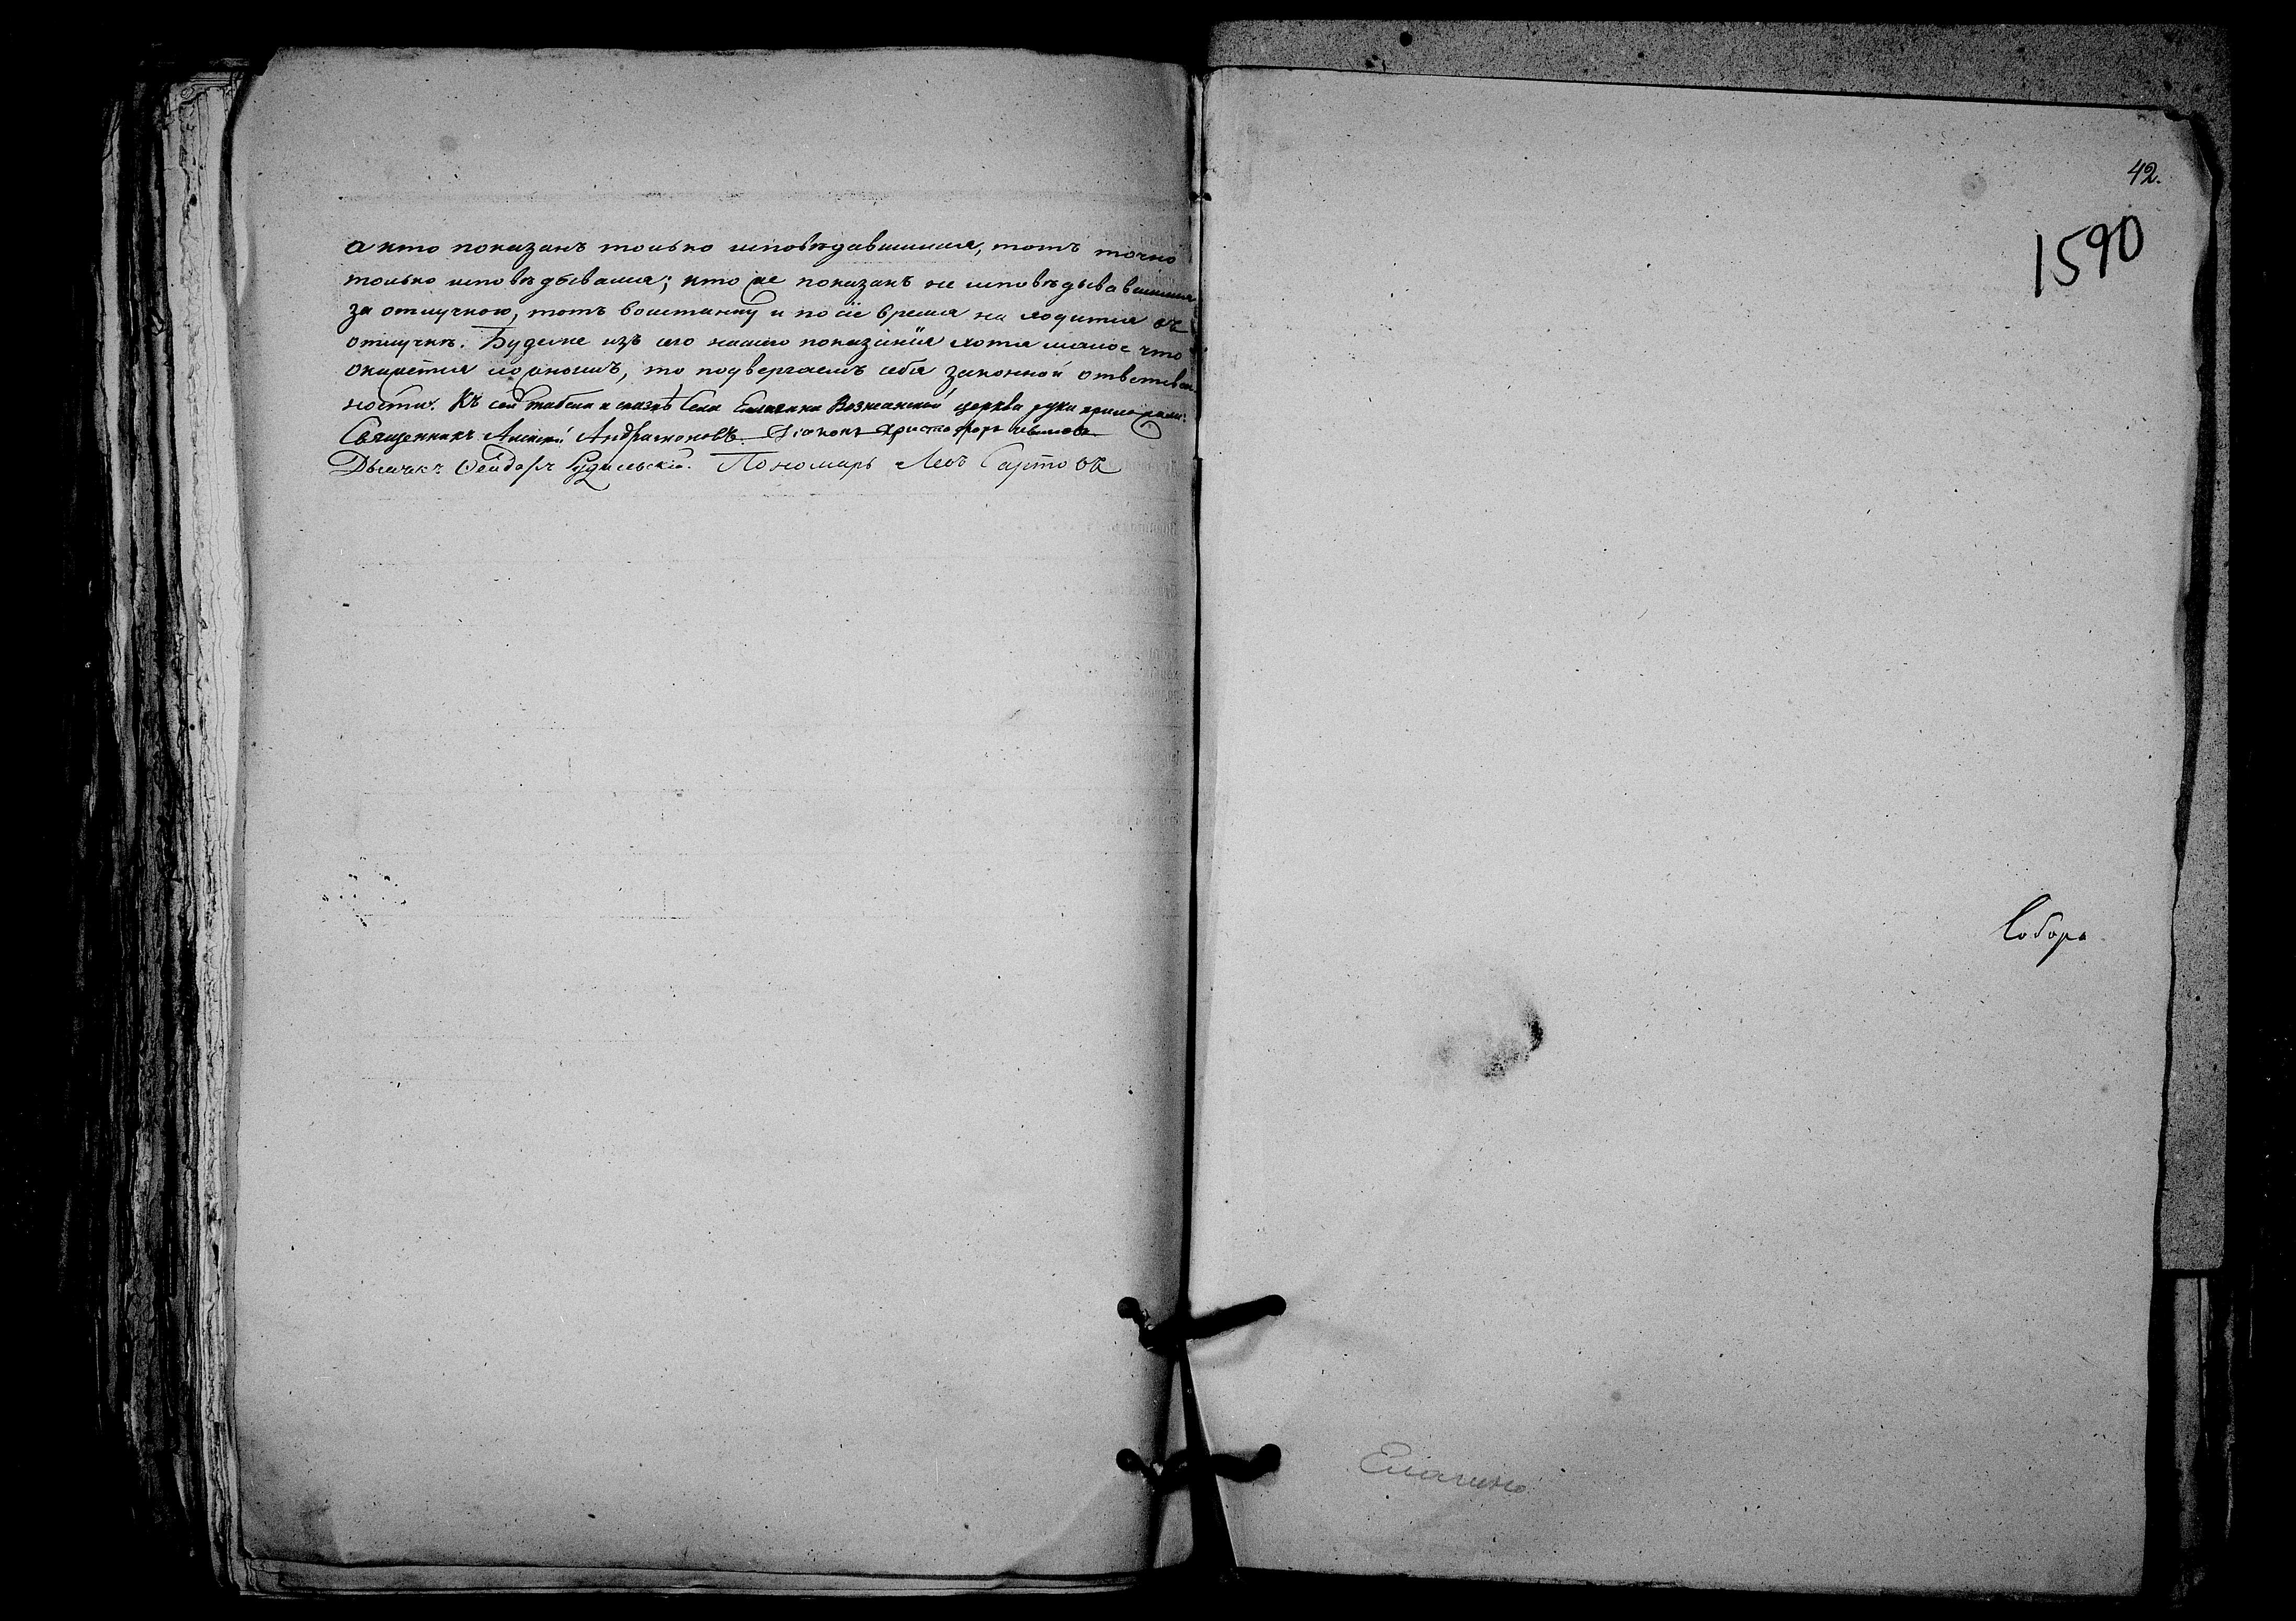 а кто показанъ только исповѣдавшимся, тотъ точно
только исповѣдывался; кто же показанъ не исповѣдывавшимся
за отлучкою, тотъ воистинну и по сіе время находится въ
отлучкѣ. Будеже изъ сего нашего показанія хотя малое что
окажется ложнымъ, то подвергаемъ себя законной ответствен
ности. Къ сей табели и сказкѣ Села Елагина Вознесенской церкви руки приложили:
Священникъ Алексѣй Андрониковъ. Діаконъ Христофоръ
Дьячекъ Ѳеодоръ Пономарь Левъ Сартовъ
42.
1590
Собора
Елагино